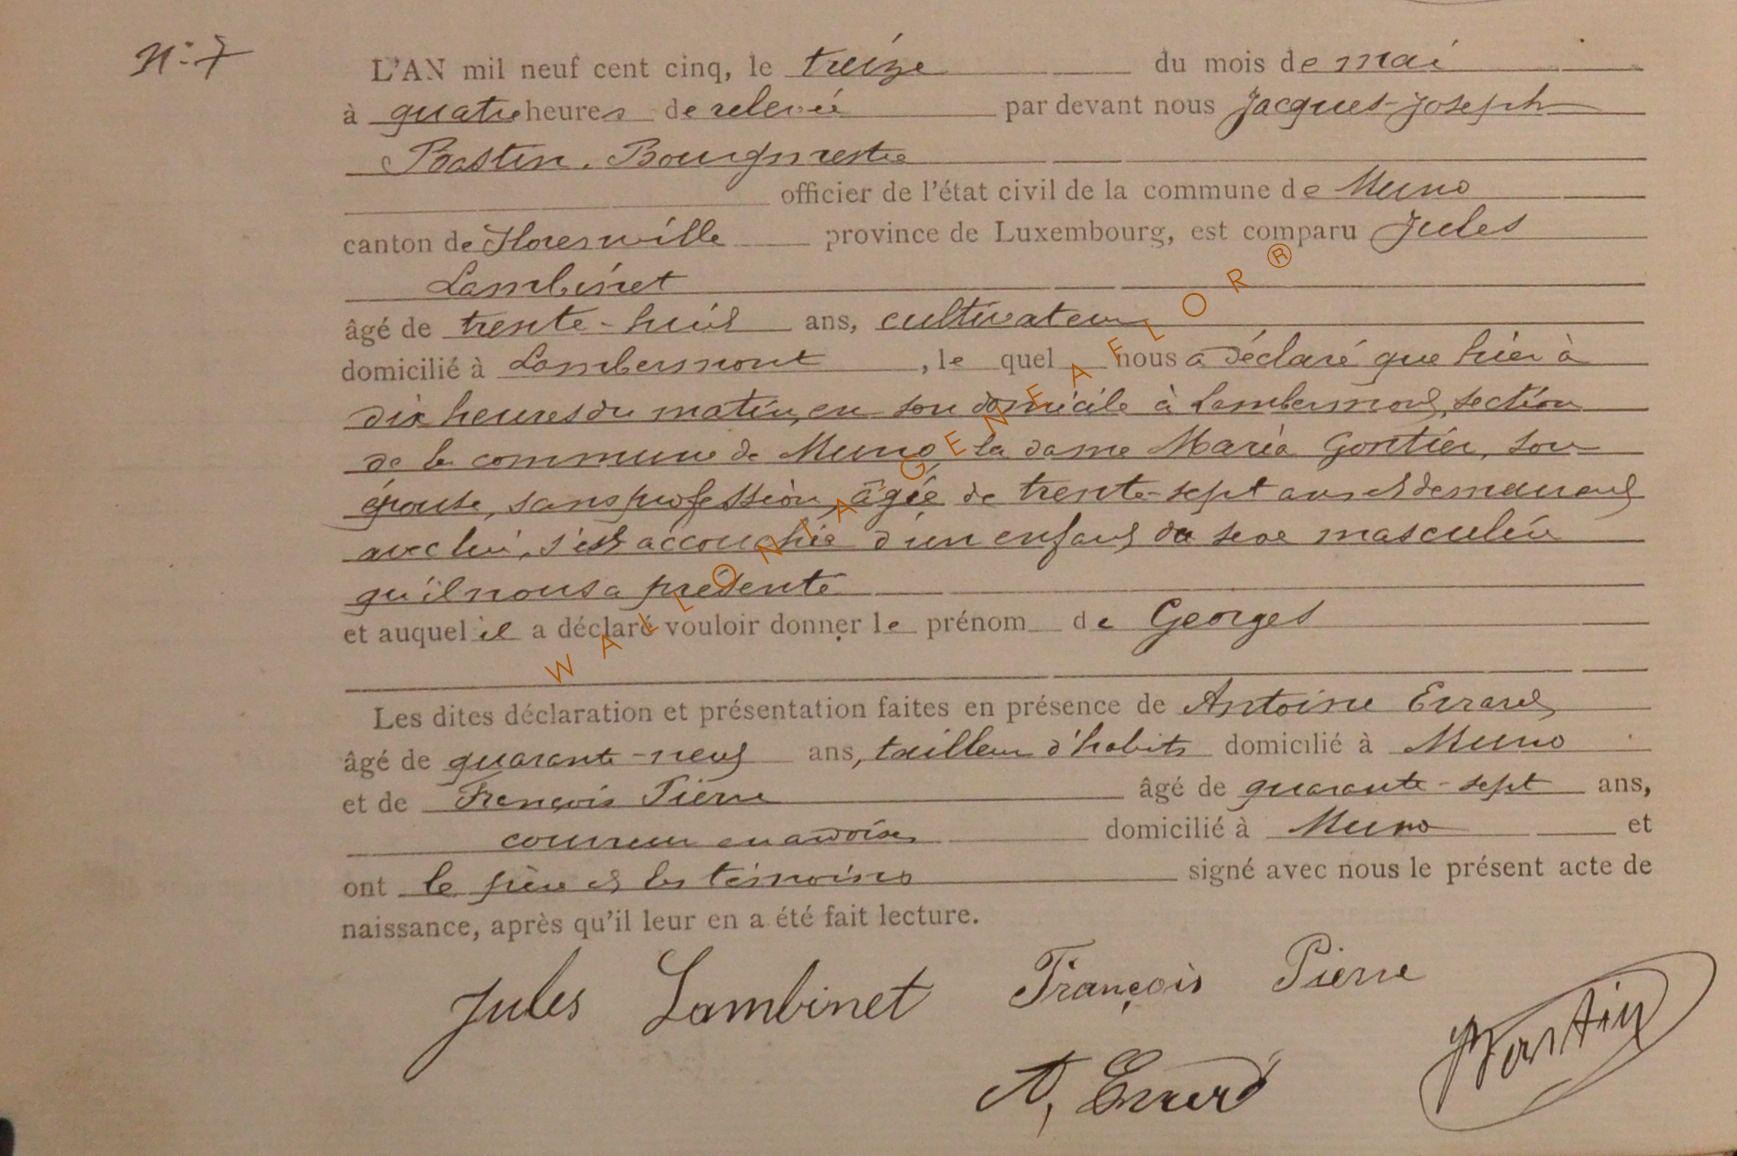 N° 7
L'AN mil neuf cent cinq, le treize du mois de mai
à quatre heures de relevée par devant nous Jacques-Joseph
Bastin, Bourgmestre
officier de l'état civil de la commune de Muno
canton de Florenville province de Luxembourg, est comparu Jules
Lambinet
âgé de trente-huit ans, cultivateur
domicilié à Lambermont, le quel nous a déclaré que hier à
dix heures du matin, en son domicile à Lambermont, section
de la commune de Muno, la dame Maria Gontier, son
épouse, sans profession, âgée de trente-sept ans et demeurant
avec lui, s'est accouchée d'un enfant du sexe masculin
qu'il nous a présenté
et auquel il a déclaré vouloir donner le prénom de Georges
Les dites déclaration et présentation faites en présence de Antoine Errard,
âgé de quarante-neuf ans, tailleur d'habits domicilié à Muno
et de François Pierre âgé de quarante-sept ans,
couvreur en ardoises domicilié à Muno et
ont le père et les témoins signé avec nous le présent acte de
naissance, après qu'il leur en a été fait lecture.
Jules Lambinet François Pierre
JBastin
A, Errard
WALLONIA GENEAFLOR ®